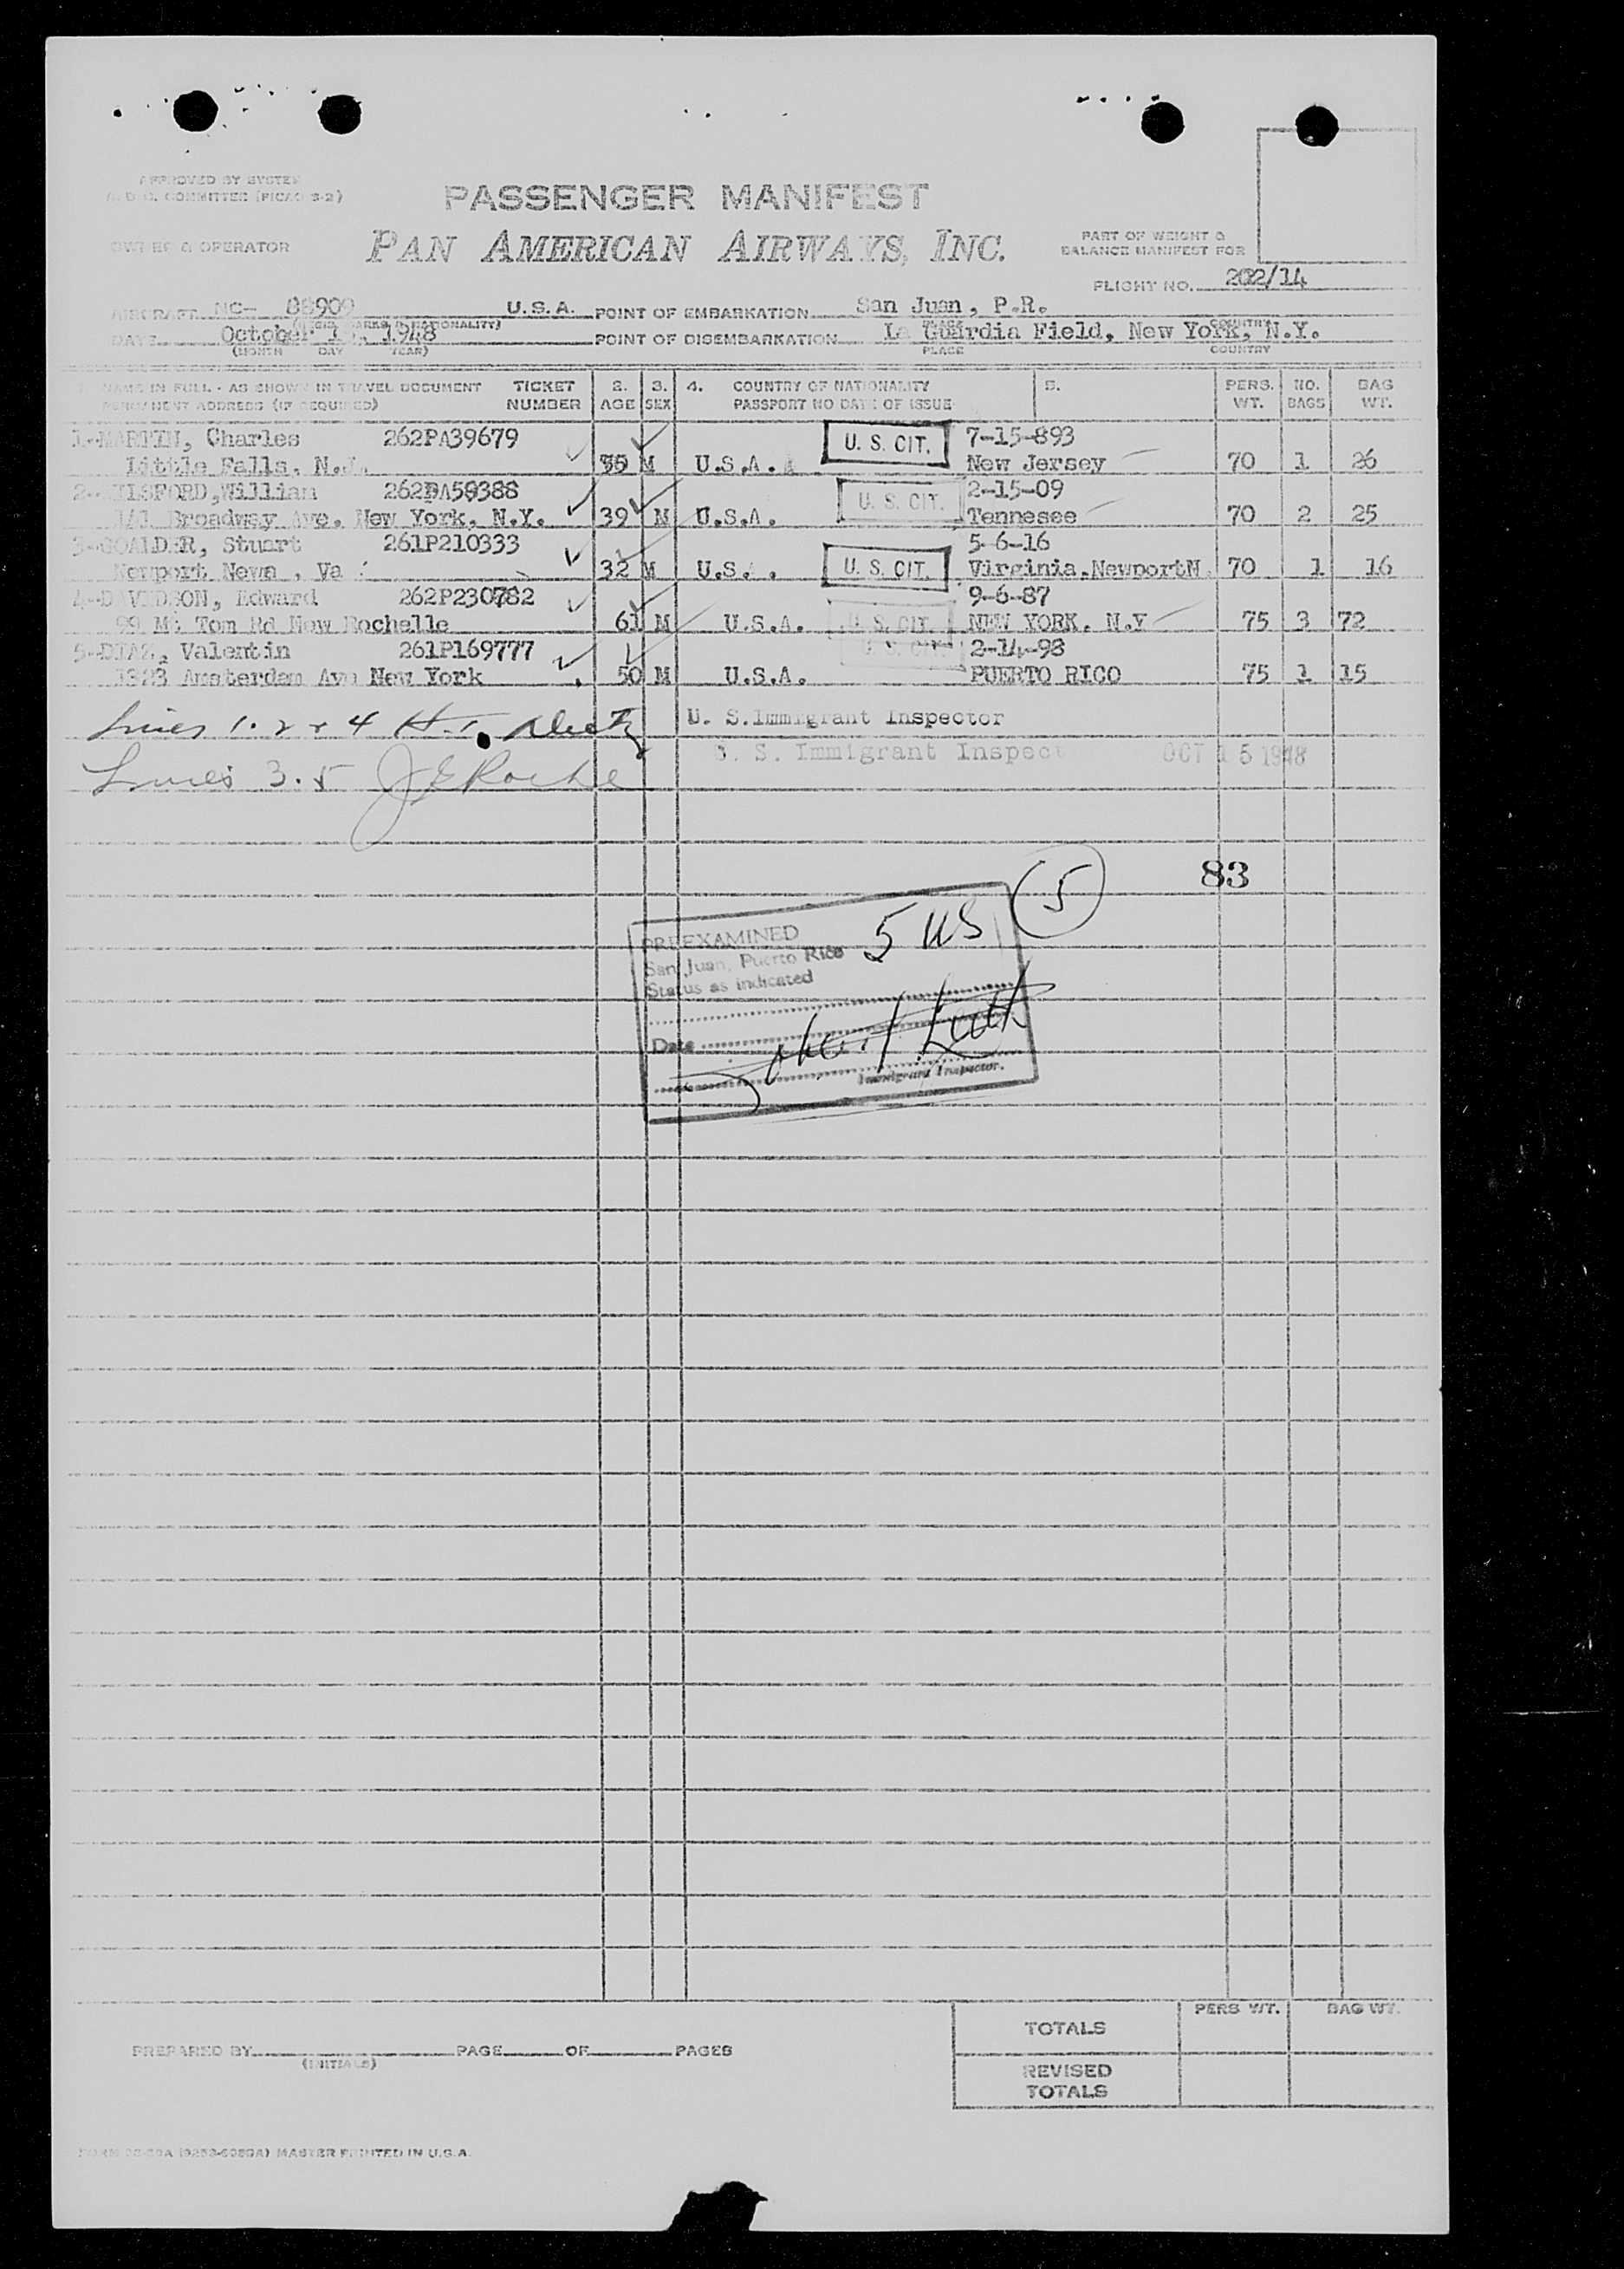 APPROVED BY SYSTEM
COMMITTEE (PICAO S-2)
PASSENGER MANIFEST
OWNER & OPERATOR
PAN AMERICAN AIRWAYS, INC.
PART OF WEIGHT &
BALANCE MANIFEST FOR
FLIGHT NO. 202/14
AIRCRAFT NC- 88909 U.S.A. POINT OF EMBARKATION San Juan, P.R.
DATE October 1 , 1948 POINT OF DISEMBARKATION La Guardia Field, New York, N.Y.
(MONTH DAY YEAR) PLACE COUNTRY
NAME IN FULL - AS SHOWN IN TRAVEL DOCUMENT TICKET 2. 3. 4. COUNTRY OF NATIONALITY 5. PERS. NO. BAG
PERMANENT ADDRESS (IF REQUIRED) NUMBER AGE SEX PASSPORT NO DATE OF ISSUE WT. BAGS WT.
1-MARTIN, Charles 262PA39679 U. S. CIT. 7-15-893
Little Falls, N.J. M U.S.A. New Jersey 70 1 26
2- William U. S. CIT. 2-15-09
Broadway Ave. New York, N.Y. 39 M U.S.A. Tennesee 70 2 25
3-GOALDER, Stuart 261P210333 5-6-16
Newport News, Va 32 M U.S. . U. S. CIT. Virginia.NewportN 70 1 16
4-DAVIDSON, Edward 262P230782 9-6-87
99 Mt Tom Rd New Rochelle 61 M U.S.A. U. S. CIT. NEW YORK. N.Y 75 3 72
5-DIAZ, Valentin 261P169777 U. S. CIT. 2-14-98
1323 Amsterdam Ave New York 50 M U.S.A. PUERTO RICO 75 1 15
Lines 1. 2 & 4 U. S. Immigrant Inspector
Lines 3. 5 J E Roche U. S. Immigrant Inspect OCT 15 1948
83
5
5 US
PREEXAMINED
San Juan, Puerto Rico
Status as indicated
Date
Immigrant Inspector.
TOTALS PERS WT. BAG WT.
PREPARED BY PAGE OF PAGES
(INITIALS)
REVISED
TOTALS
FORM MASTER PRINTED IN U.S.A.